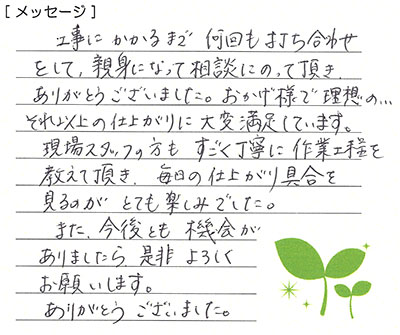 [メッセージ]
工事にかかるまで 何回も打ち合わせ
をして、親身になって相談にのって頂き、
ありがとうございました。おかげ様で理想の…
それ以上の仕上がりに大変満足しています。
現場スタッフの方も すごく丁寧に作業工程を
教えて頂き、毎日の仕上がり具合を
見るのが とても楽しみでした。
また、今後とも 機会が
ありましたら 是非 よろしく
お願いします。
ありがとう ございました。